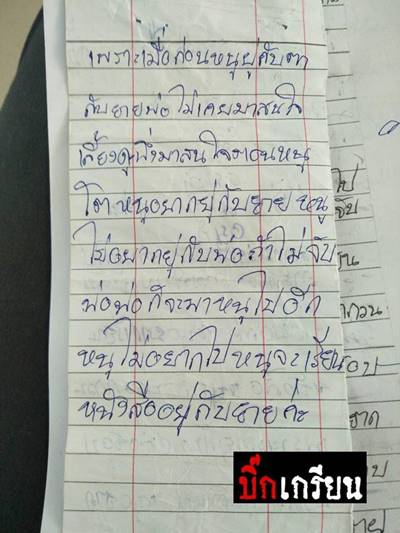 เพราะเมื่อก่อนหนูอยู่กับตา
กับยายพ่อไม่เคยมาสนใจ
เลี้ยงดูพึ่งมาสนใจตอนหนู
โตหนูอยากอยู่กับยายหนู
ไม่อยากอยู่กับพ่อถ้าไม่จับ
พ่อพ่อก็จะพาหนูไปอีก
หนูไม่อยากไปหนูจะเรียน
หนังสืออยู่กับยายค่ะ
บิ๊กเกรียน